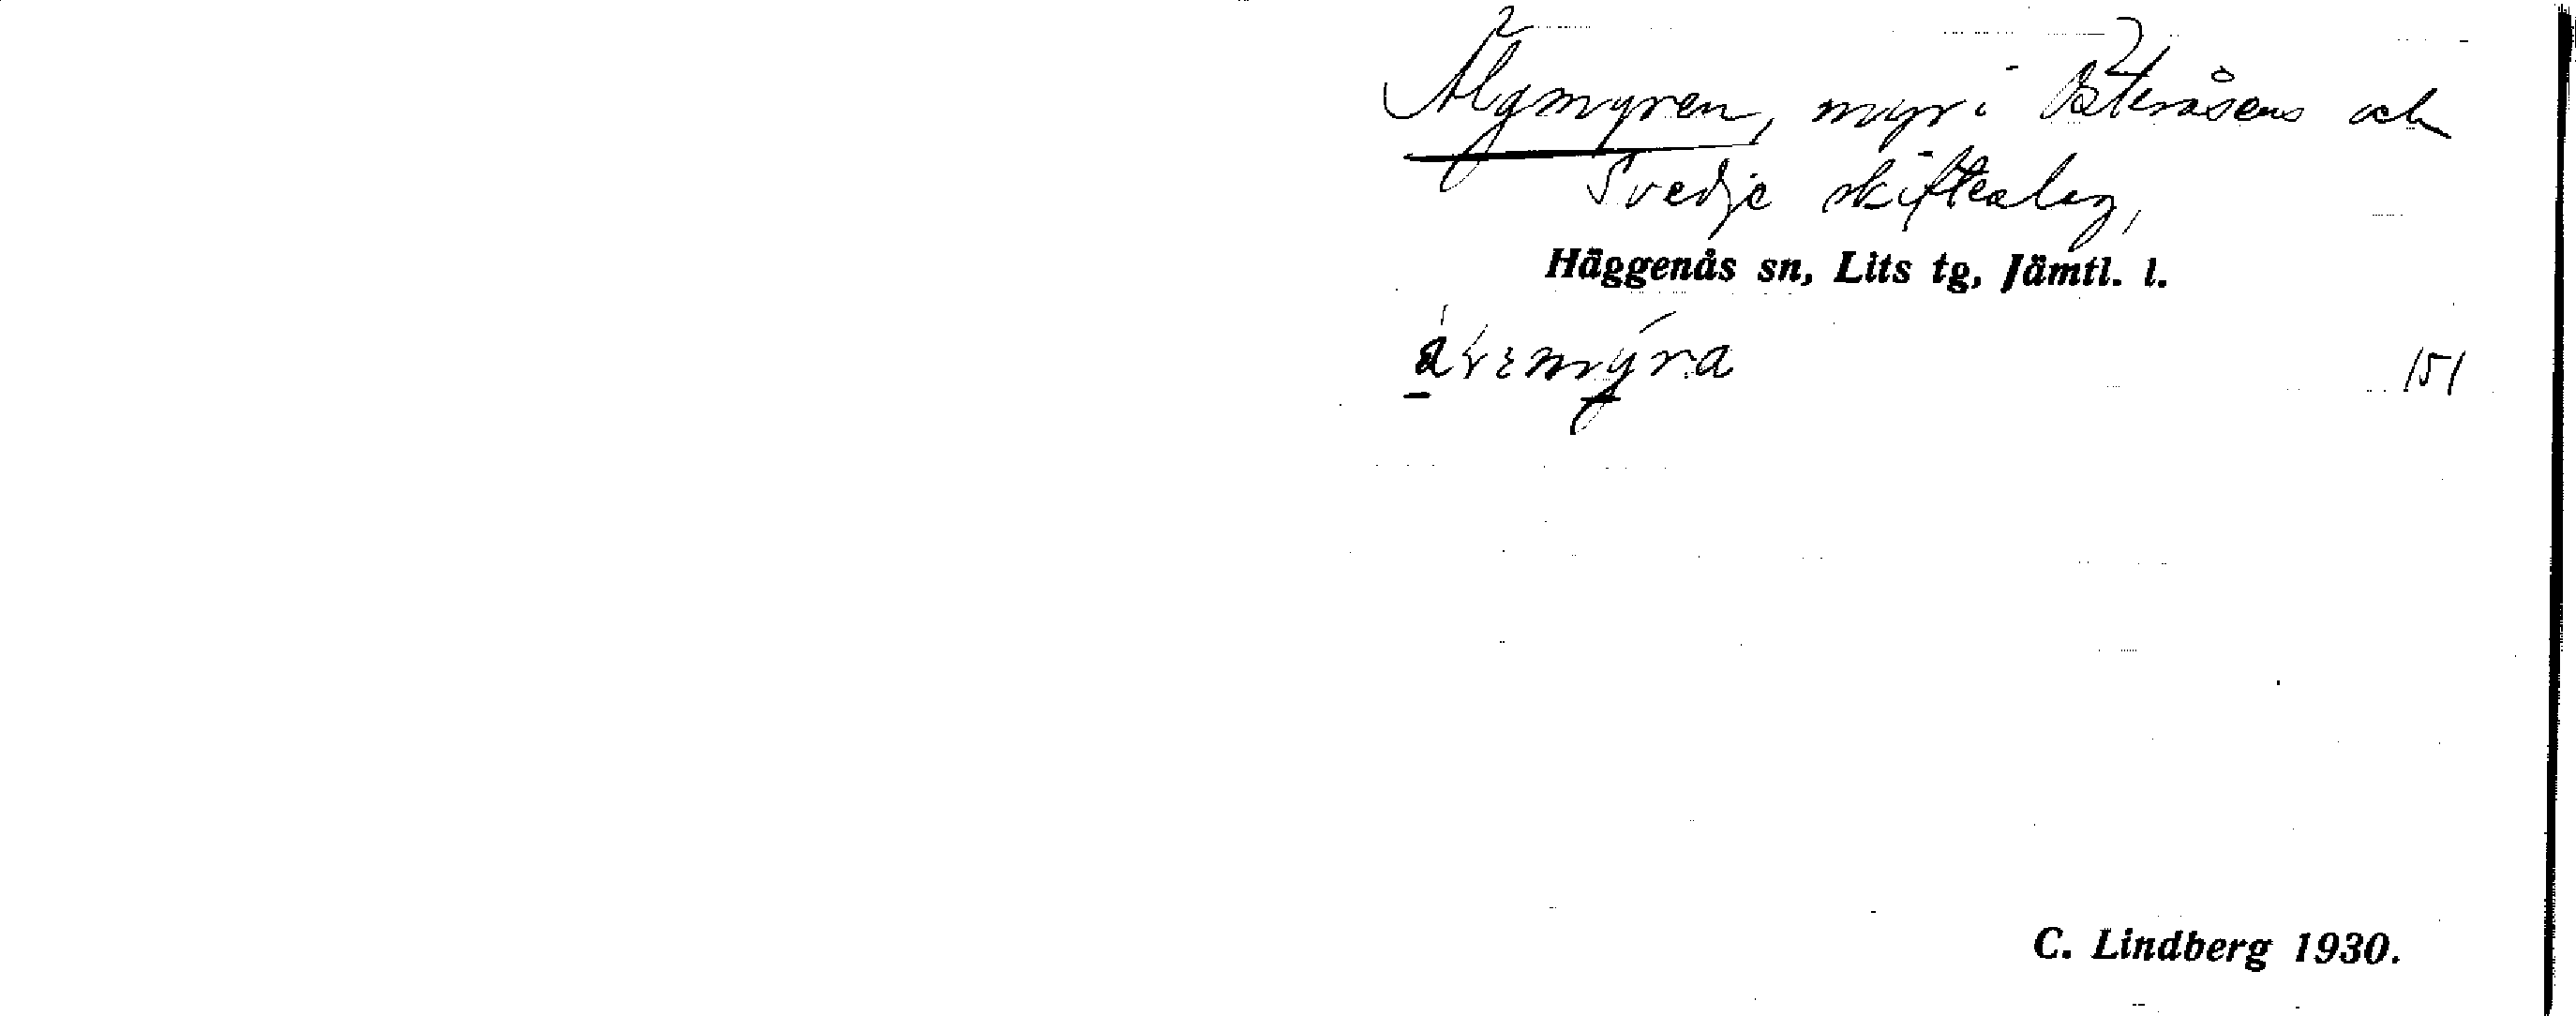 Älgmyren, myr i Österåsens och
Svedje skifteslag,
Häggenås sn, Lits tg, Jämtl. l.
151
C. Lindberg 1930.